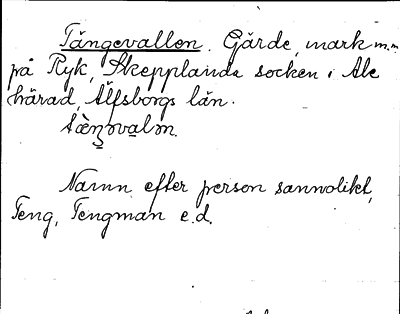 Tångevallen. Gärde, mark m.m.
på Ryk, Skepplanda socken i Ale
härad, Älfsborgs län.
Namn efter person sannolikt,
Teng, Tengman e.d.